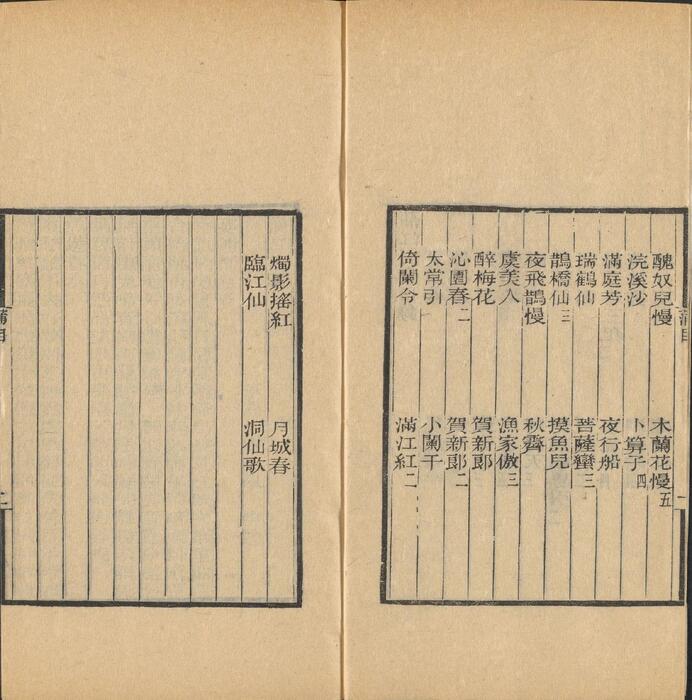 醜奴兒慢 木蘭花慢五
浣溪沙 卜算子四
滿庭芳 夜行船
瑞鶴仙 菩薩蠻三
鵲橋仙三 摸魚兒
夜飛鵲慢 秋霽
虞美人 漁家傲三
醉梅花 賀新郎
沁園春二 賀新郎二
太常引 小闌干
倚闌令 滿江紅二
燭影搖紅 月城春
臨江仙 洞仙歌